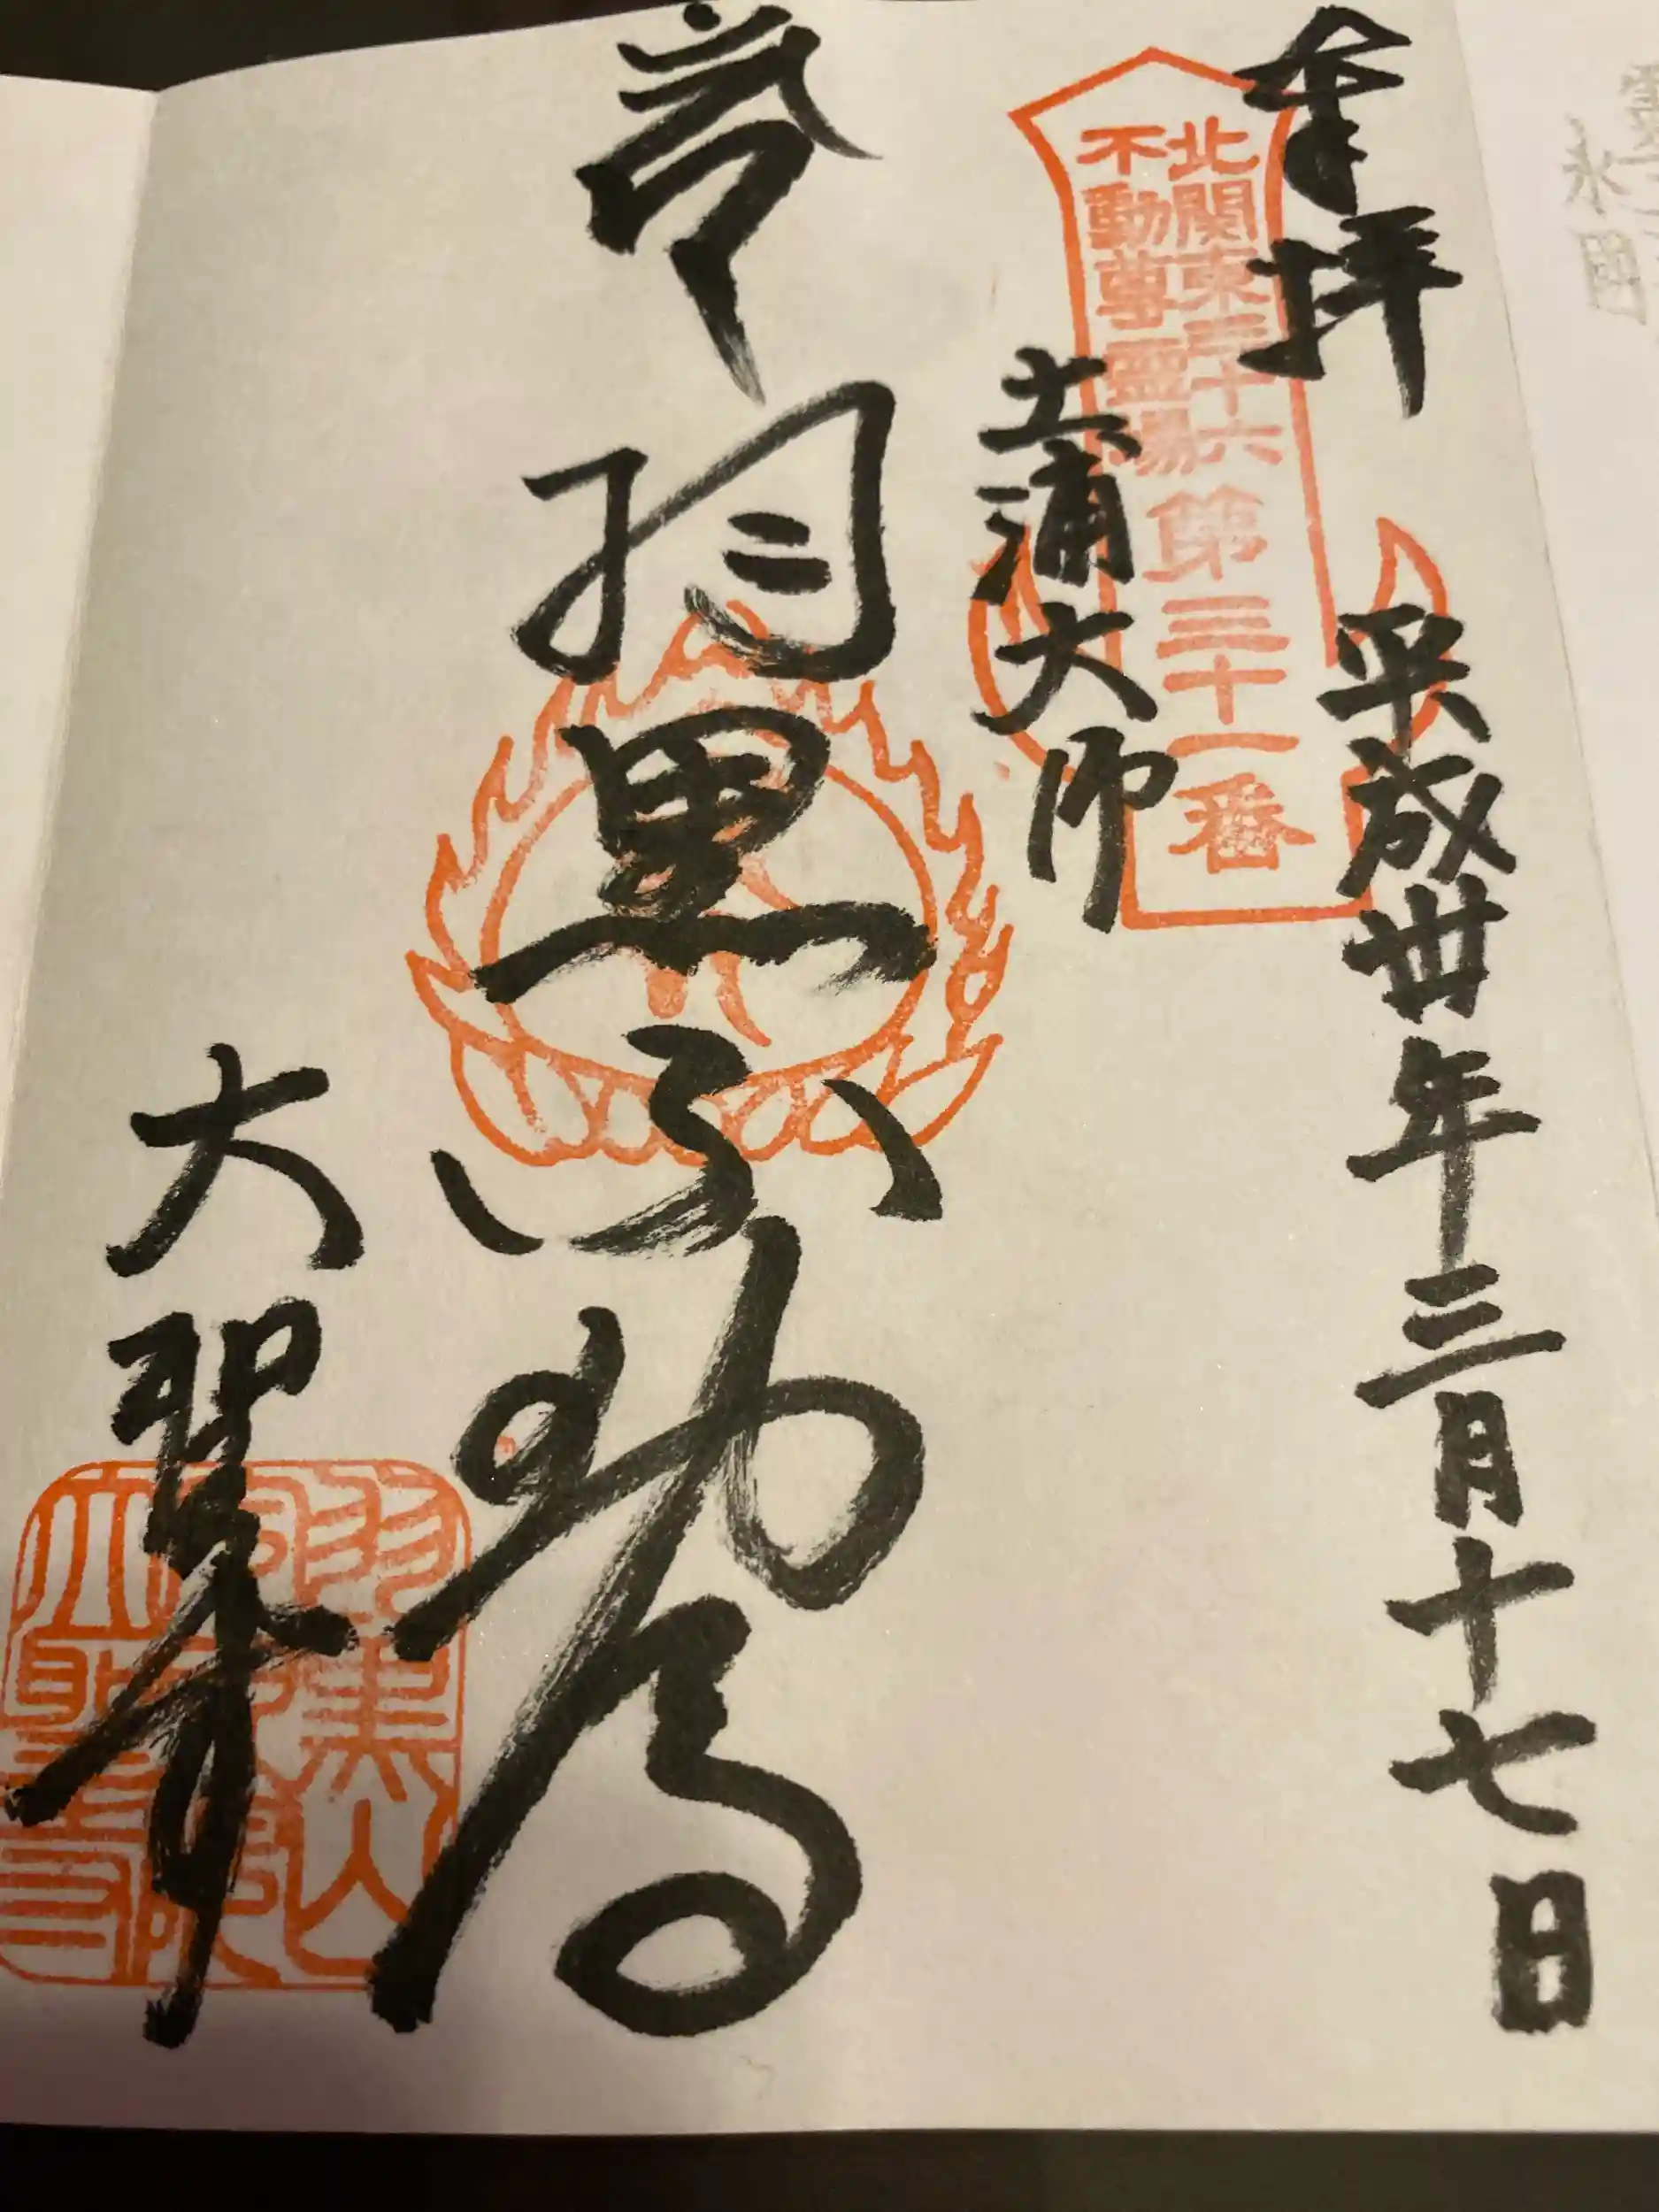 奉拝
平成丗年三月十七日
北関東三十六
不動尊霊場
第三十一番
土浦大師
羽黒不動尊
大聖寺
永